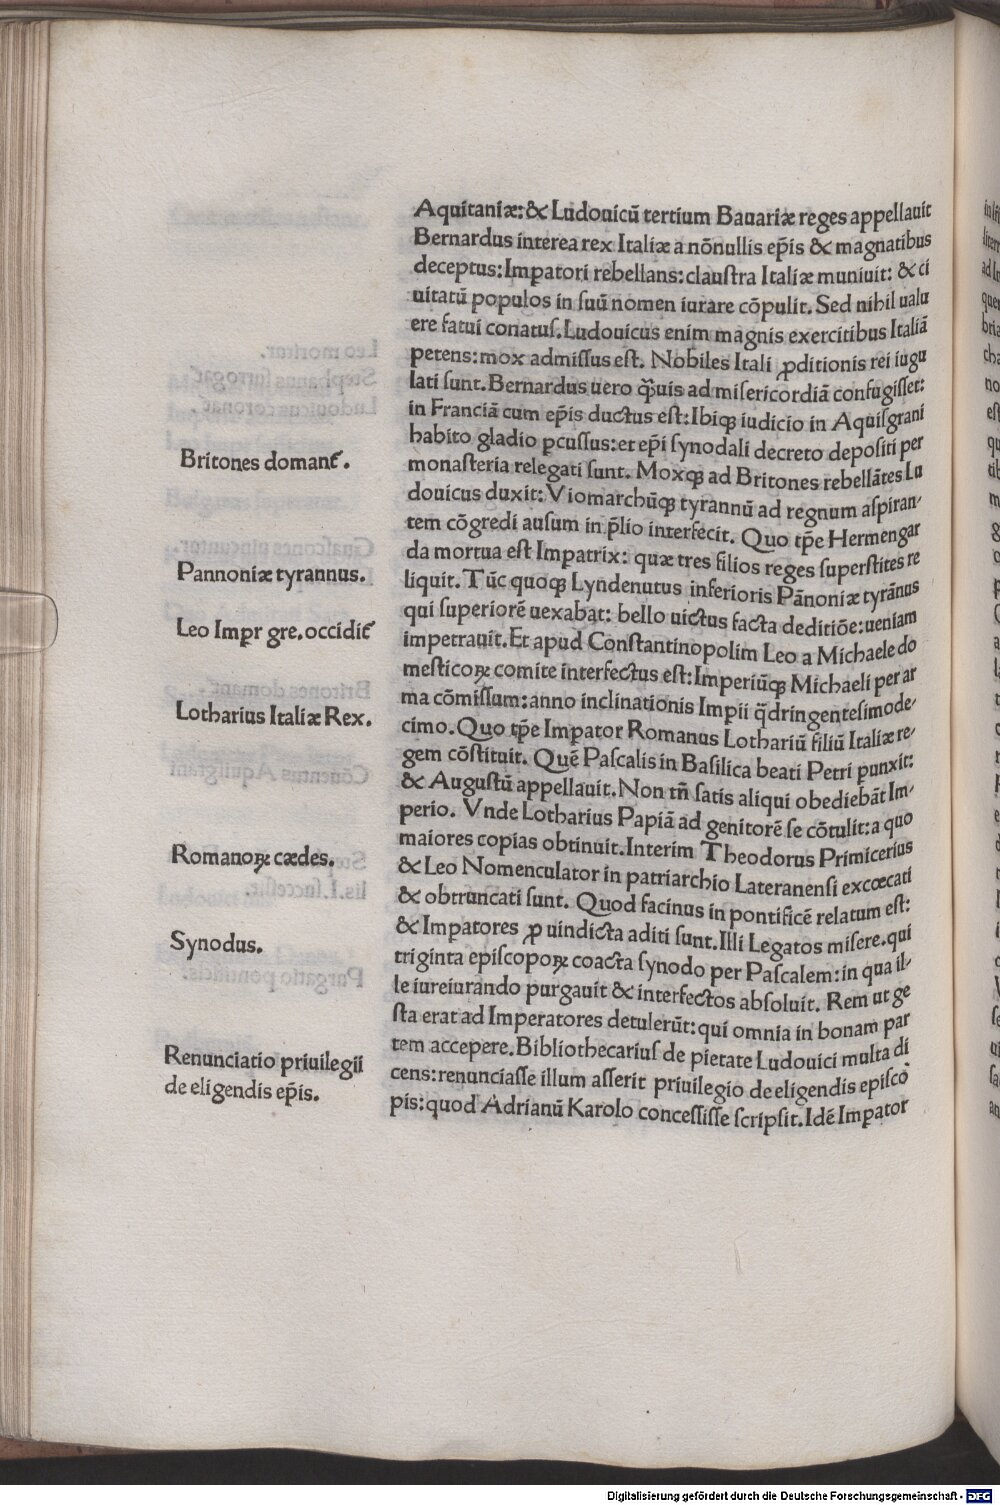 Aquitaniæ: & Ludouicū tertium Bauariæ reges appellauit
Bernardus interea rex Italiæ a nōnullis ep̄is & magnatibus
deceptus: Imꝑatori rebellans: claustra Italiæ muniuit: & ci
uitatū populos in suū nomen iurare cōpulit. Sed nihil ualu
ere fatui conatus. Ludouicus enim magnis exercitibus Italiā
petens: mox admissus est. Nobiles Itali ꝓditionis rei iugu
lati sunt. Bernardus uero q̄uis ad misericordiā confugisset:
in Franciā cum ep̄is ductus est: Ibiqꝫ iudicio in Aquisgrani
habito gladio ꝑcussus: et ep̄i synodali decreto depositi per
Britones domant᷑.
monasteria relegati sunt. Moxqꝫ ad Britones rebellātes Lu
douicus duxit: Viomarchūqꝫ tyrannū ad regnum aspiran-
tem cōgredi ausum in p̄lio interfecit. Quo tp̄e Hermengar
da mortua est Imꝑatrix: quæ tres filios reges superstites re
Pannoniæ tyrannus.
liquit. Tūc quoqꝫ Lyndenutus inferioris Pānoniæ tyrānus
qui superiorē uexabat: bello uictus facta deditiōe: ueniam
Leo Imꝑr gre. occidit᷑
impetrauit. Et apud Constantinopolim Leo a Michaele do
mesticoꝝ comite interfectus est: Imperiūqꝫ Michaeli per ar
ma cōmissum: anno inclinationis Imꝑii q̄dringentesimode-
Lotharius Italiæ Rex.
cimo. Quo tp̄e Imꝑator Romanus Lothariū filiū Italiæ re-
gem cōstituit. Quē Pascalis in Basilica beati Petri ꝑunxit:
& Augustū appellauit. Non tn̄ satis aliqui obediebāt Im-
perio. Vnde Lotharius Papiā ad genitorē se cōtulit: a quo
maiores copias obtinuit. Interim Theodorus Primicerius
Romanoꝝ cædes.
& Leo Nomenculator in patriarchio Lateranensi excœcati
& obtruncati sunt. Quod facinus in pontificē relatum est:
& Imꝑatores ꝓ uindicta aditi sunt. Illi Legatos misere. qui
Synodus.
triginta episcopoꝝ coacta synodo per Pascalem: in qua il-
le iureiurando purgauit & interfectos absoluit. Rem ut ge
sta erat ad Imperatores detulerūt: qui omnia in bonam par
tem accepere. Bibliothecarius de pietate Ludouici multa di
Renunciatio priuilegii
de eligendis ep̄is.
cens: renunciasse illum asserit priuilegio de eligendis episco
pis: quod Adrianū Karolo concessisse scripsit. Idē Imꝑator
Digitalisierung gefördert durch die Deutsche Forschungsgemeinschaft - DFG